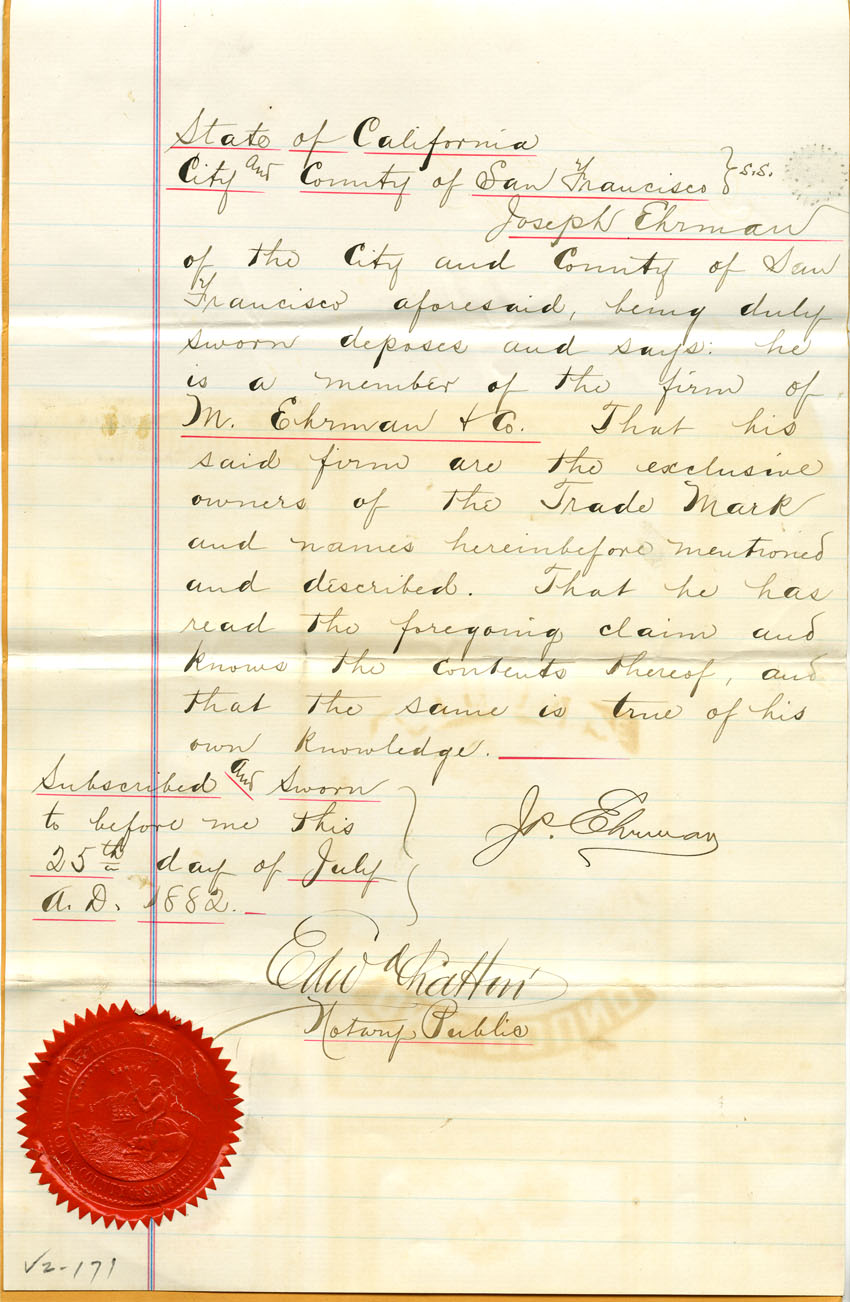 State of California
City and County of San Francisco } s.s.
Joseph Ehrman
of the City and County of San
Francisco aforesaid, being duly
sworn deposes and says: he
is a member of the firm of
M. Ehrman & Co. That his
said firm are the exclusive
owners of the Trade Mark
and names hereinbefore mentioned
and described. That he has
read the foregoing claim and
knows the contents thereof, and
that the same is true of his
own knowledge.
Subscribed and Sworn
to before me this
25th day of July
A.D. 1882.
Js. Ehrman
Edwd Chattin
Notary Public
V2-171